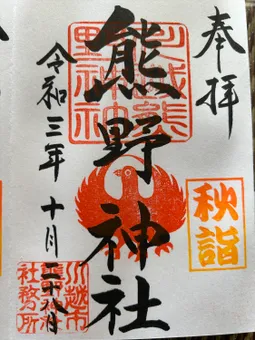 奉拝
秋詣
川越熊野神社
熊野神社
令和三年十月二十八日
川越市
熊野神社
社務所